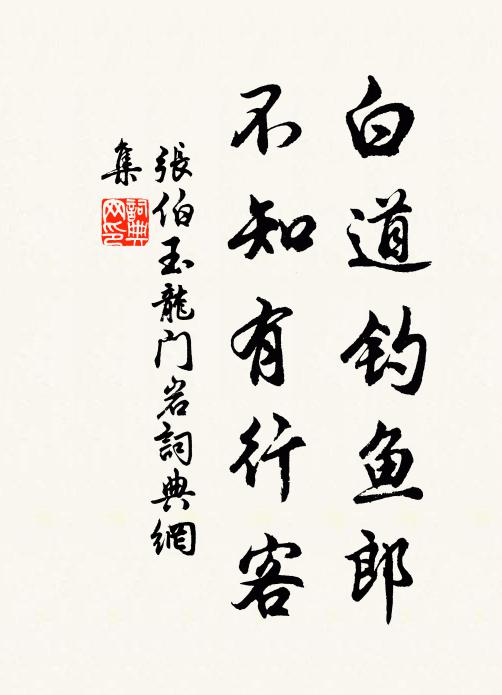 白道钓鱼郎
不知有行客
張伯玉龍门岩詞典網
集
詞典
网印